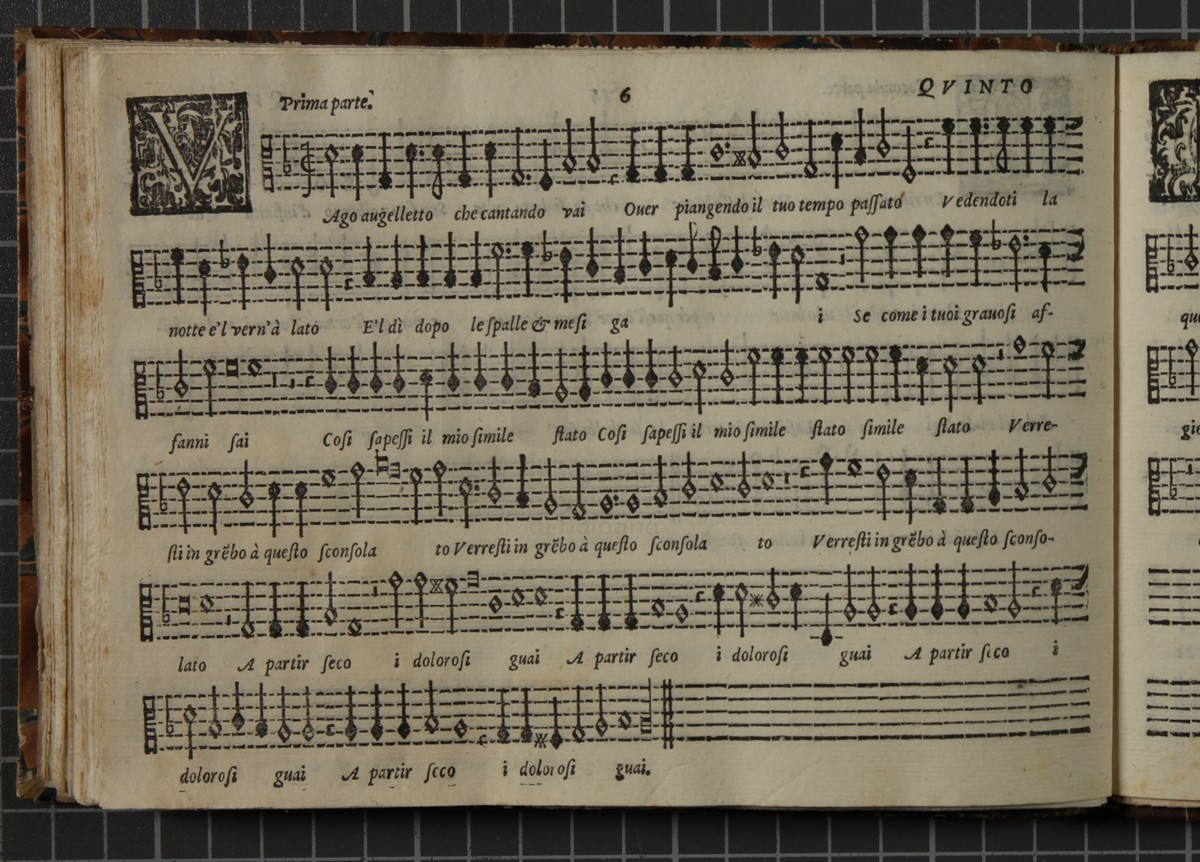 Prima parte. 6 QVINTO
VAgo augelletto che cantando vai Ouer piangendo il tuo tempo paſſato Vedendoti la
notte e'l vern'à lato E'l dì dopo le ſpalle & meſi ga i Se come i tuoi grauoſi af-
fanni ſai Coſi ſapeſſi il mio ſimile ſtato Coſi ſapeſſi il mio ſimile ſtato ſimile ſtato Verre-
ſti in grẽbo à queſto ſconſola to Verreſti in grẽbo à queſto ſconſola to Verreſti in grẽbo à queſto ſconſo-
lato A partir ſeco i doloroſi guai A partir ſeco i doloroſi guai A partir ſeco i
doloroſi guai A partir ſeco i doloroſi guai.
que
gio